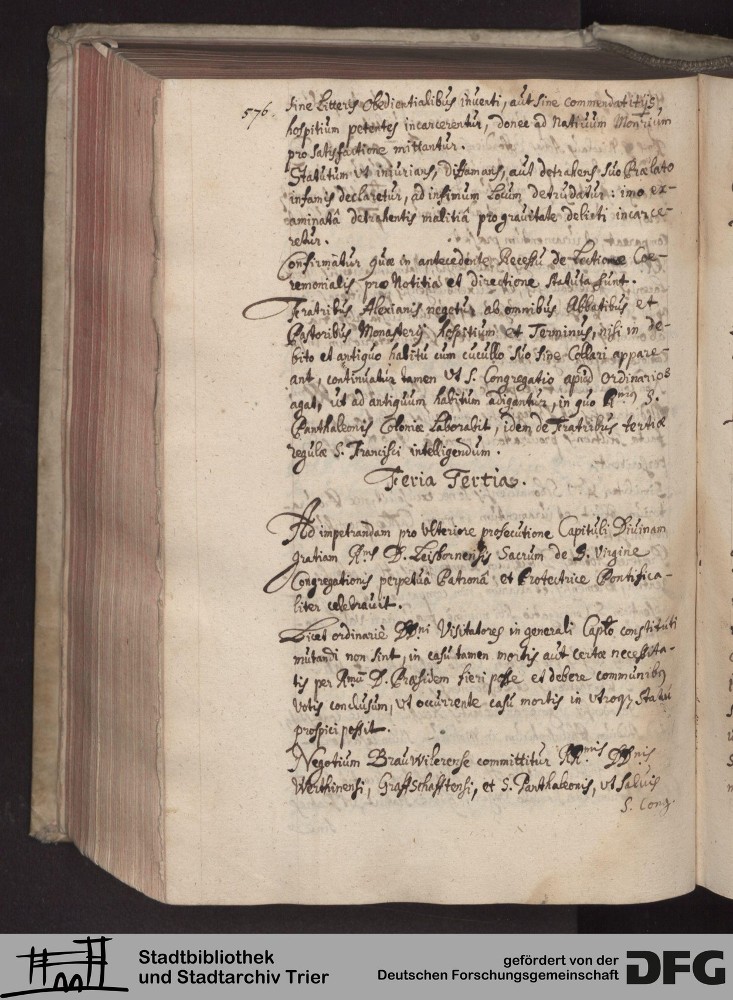 576. sine Litteris Obedientialibus inventi, aut sine commendatitijs,
hospitium petentes incarcerentur, donec ad Nativum Monrium
pro satisfactione mittantur.
Statutum ut injurians, diffamans, aut detrahens suo Prælato
infamis declaretur, ad infimum Locum detrudatur: imo ex-
aminatâ detrahentis malitiâ pro gravitate delicti incarce-
retur.
Confirmatur quæ in antecedente Recessu de Lectione Cæ-
remonialis pro Notitia et directione statuta sunt.
Fratribus Alexianis negetur ab omnibus Abbatibus et
Pastoribus Monasterij hospitium et Terminus, nisi in de-
bito et antiquo habitu cum cucullo suo sine Collari appare-
ant, continuatur tamen ut S. Congregatio apud Ordinarios
agat, ut ad antiquum habitum adigantur, in quo Rmus S.
Panthaleonis Coloniæ Laborabit, idem de Fratribus tertiæ
regulæ S. Francisci intelligendum.
Feria Tertia.
Ad impetrandam pro ulteriore prosecutione Capituli Divinam
gratiam Rms D. Leisbornensis Sacrum de S. Virgine
Congregationis perpetuâ Patronâ et Protectrice Pontifica-
liter celebravit.
Licet ordinariè DDni Visitatores in generali Caplo constituti
mutandi non sint, in casu tamen mortis aut certæ necessita-
tis per Rmu D. Præsidem fieri posse et debere communibq
votis conclusum, ut occurrente casu mortis in utroq statu
prospici possit.
Negotium Brauwilerense committitur RRmis DDnis
Werthinensi, Graffschafftensi, et S. Panthaleonis, ut salvis
S. Cong.
Stadtbibliothek
und Stadtarchiv Trier
gefördert von der
Deutschen Forschungsgemeinschaft
DFG